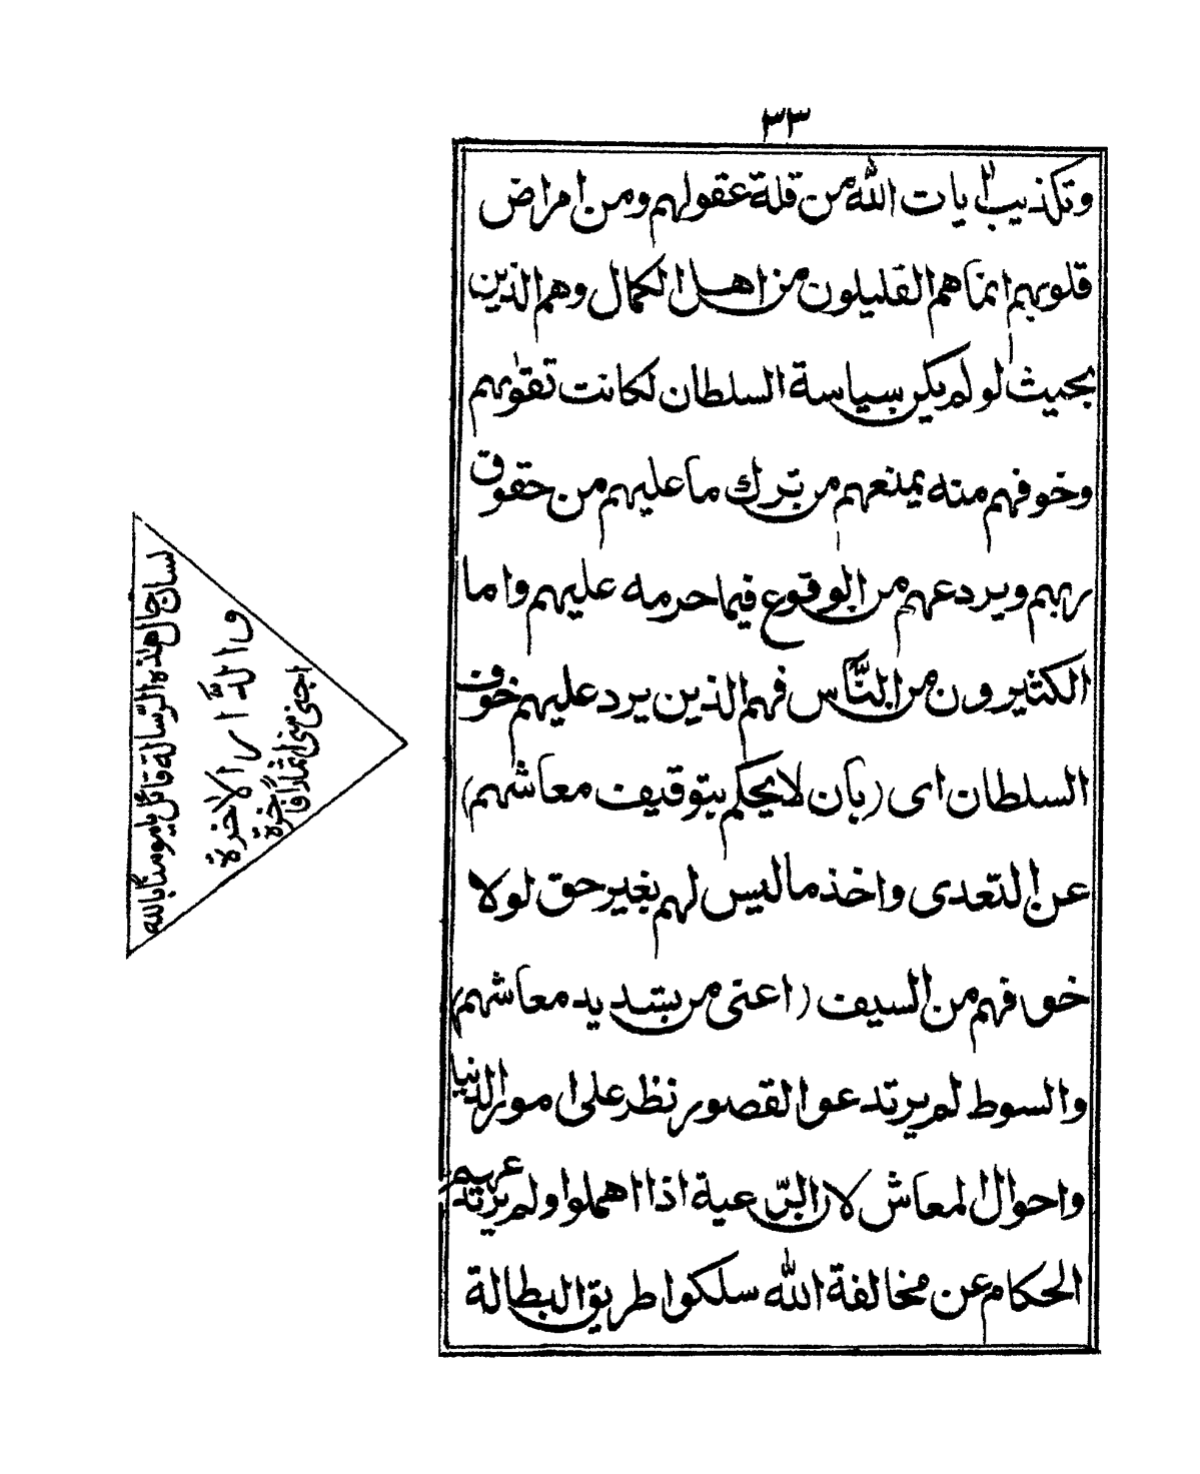 ٣٣
وتكذيب ايات الله من قلة عقولهم ومن امراض
قلوبهم انما هم القليلون من اهل الكمال وهم الذين
بحيث لو لم يكن سياسة السلطان لكانت تقوٰيهم
وخوفهم منه يمنعهم من ترك ما عليهم من حقوق
ربهم ويردعهم من الوقوع فيما حرمه عليهم واما
الكثيرون من النّاس فهم الذين يردعليهم خوف
السلطان اى (بان لا يحكم بتوقيف معاشهم)
عن التعدى واخذ ما ليس لهم بغير حق لولا
خوفهم من السيف (اعنى من بتبديد معاشهم)
والسوط لم يرتدعوا لقصور نظر على امور الدنيا
واحوال المعاش لان الرّعية اذا اهملوا ولم يرتد عنهم
الحكام عن مخالفة الله سلكوا طريق البطالة
لسان حال هذه الرّسالة قائل يا مومنًا بالله
والدَّار الاخرة
اجنى منى اثمارًا فاخرة